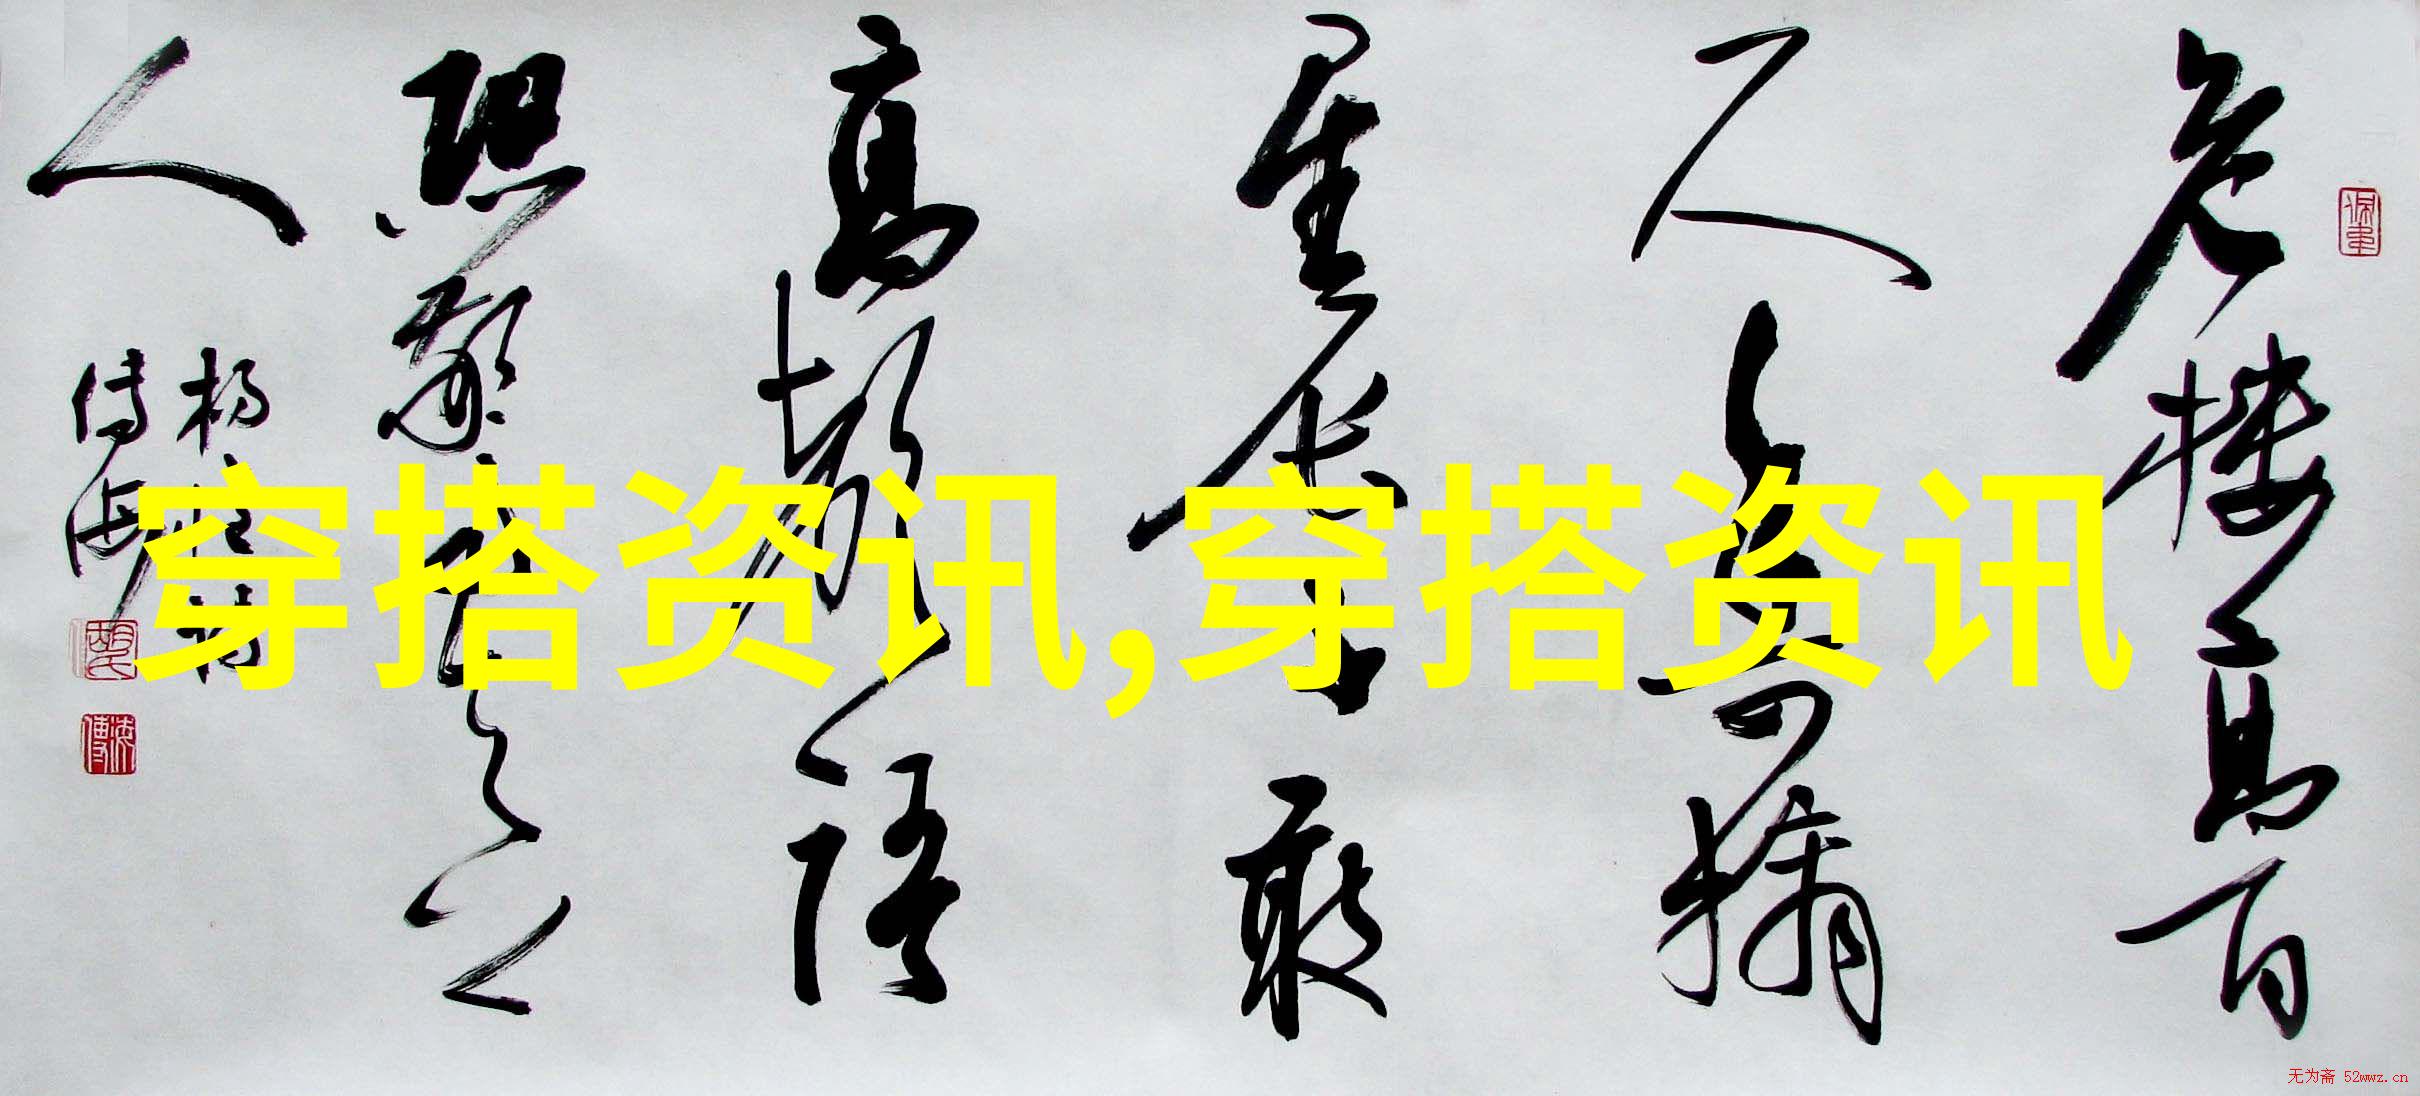 危樓高百
尺手可摘
星辰不敢
高聲語
恐驚天上
人
穿搭资讯,穿搭资讯
无为斋 52wwz.cn